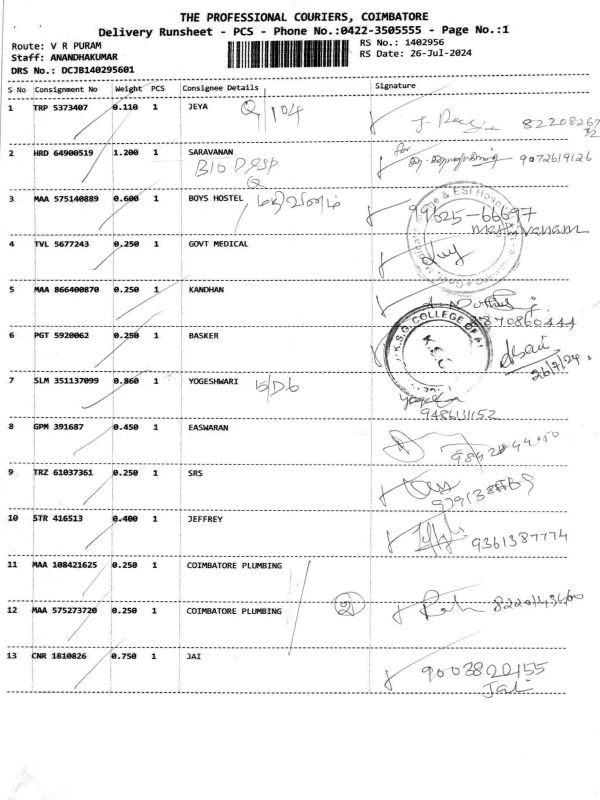 THE PROFESSIONAL COURIERS, COIMBATORE
Delivery Runsheet - PCS - Phone No.:0422-3505555 - Page No.:1
Route: V R PURAM
RS No.: 1402956
Staff: ANANDHAKUMAR
RS Date: 26-Jul-2024
DRS No.: DCJB140295601
S No Consignment No Weight PCS Consignee Details Signature
1 TRP 5373407 0.110 1 JEYA 104
2 HRD 64900519 1.200 1 SARAVANAN 9072619126
3 MAA 575140889 0.600 1 BOYS HOSTEL 99625-66697
4 TVL 5677243 0.250 1 GOVT MEDICAL
5 MAA 866400870 0.250 1 KANDHAN
6 PGT 5920062 0.250 1 BASKER
K.S.G. COLLEGE OF
26/7/24
7 SLM 351137099 0.860 1 YOGESHWARI
9486131152
8 GPM 391687 0.450 1 EASWARAN
9 TRZ 61037361 0.250 1 SRS
10 STR 416513 0.400 1 JEFFREY 9361387774
11 MAA 108421625 0.250 1 COIMBATORE PLUMBING
12 MAA 575273720 0.250 1 COIMBATORE PLUMBING
13 CNR 1810826 0.750 1 JAI 9003820155
Jai